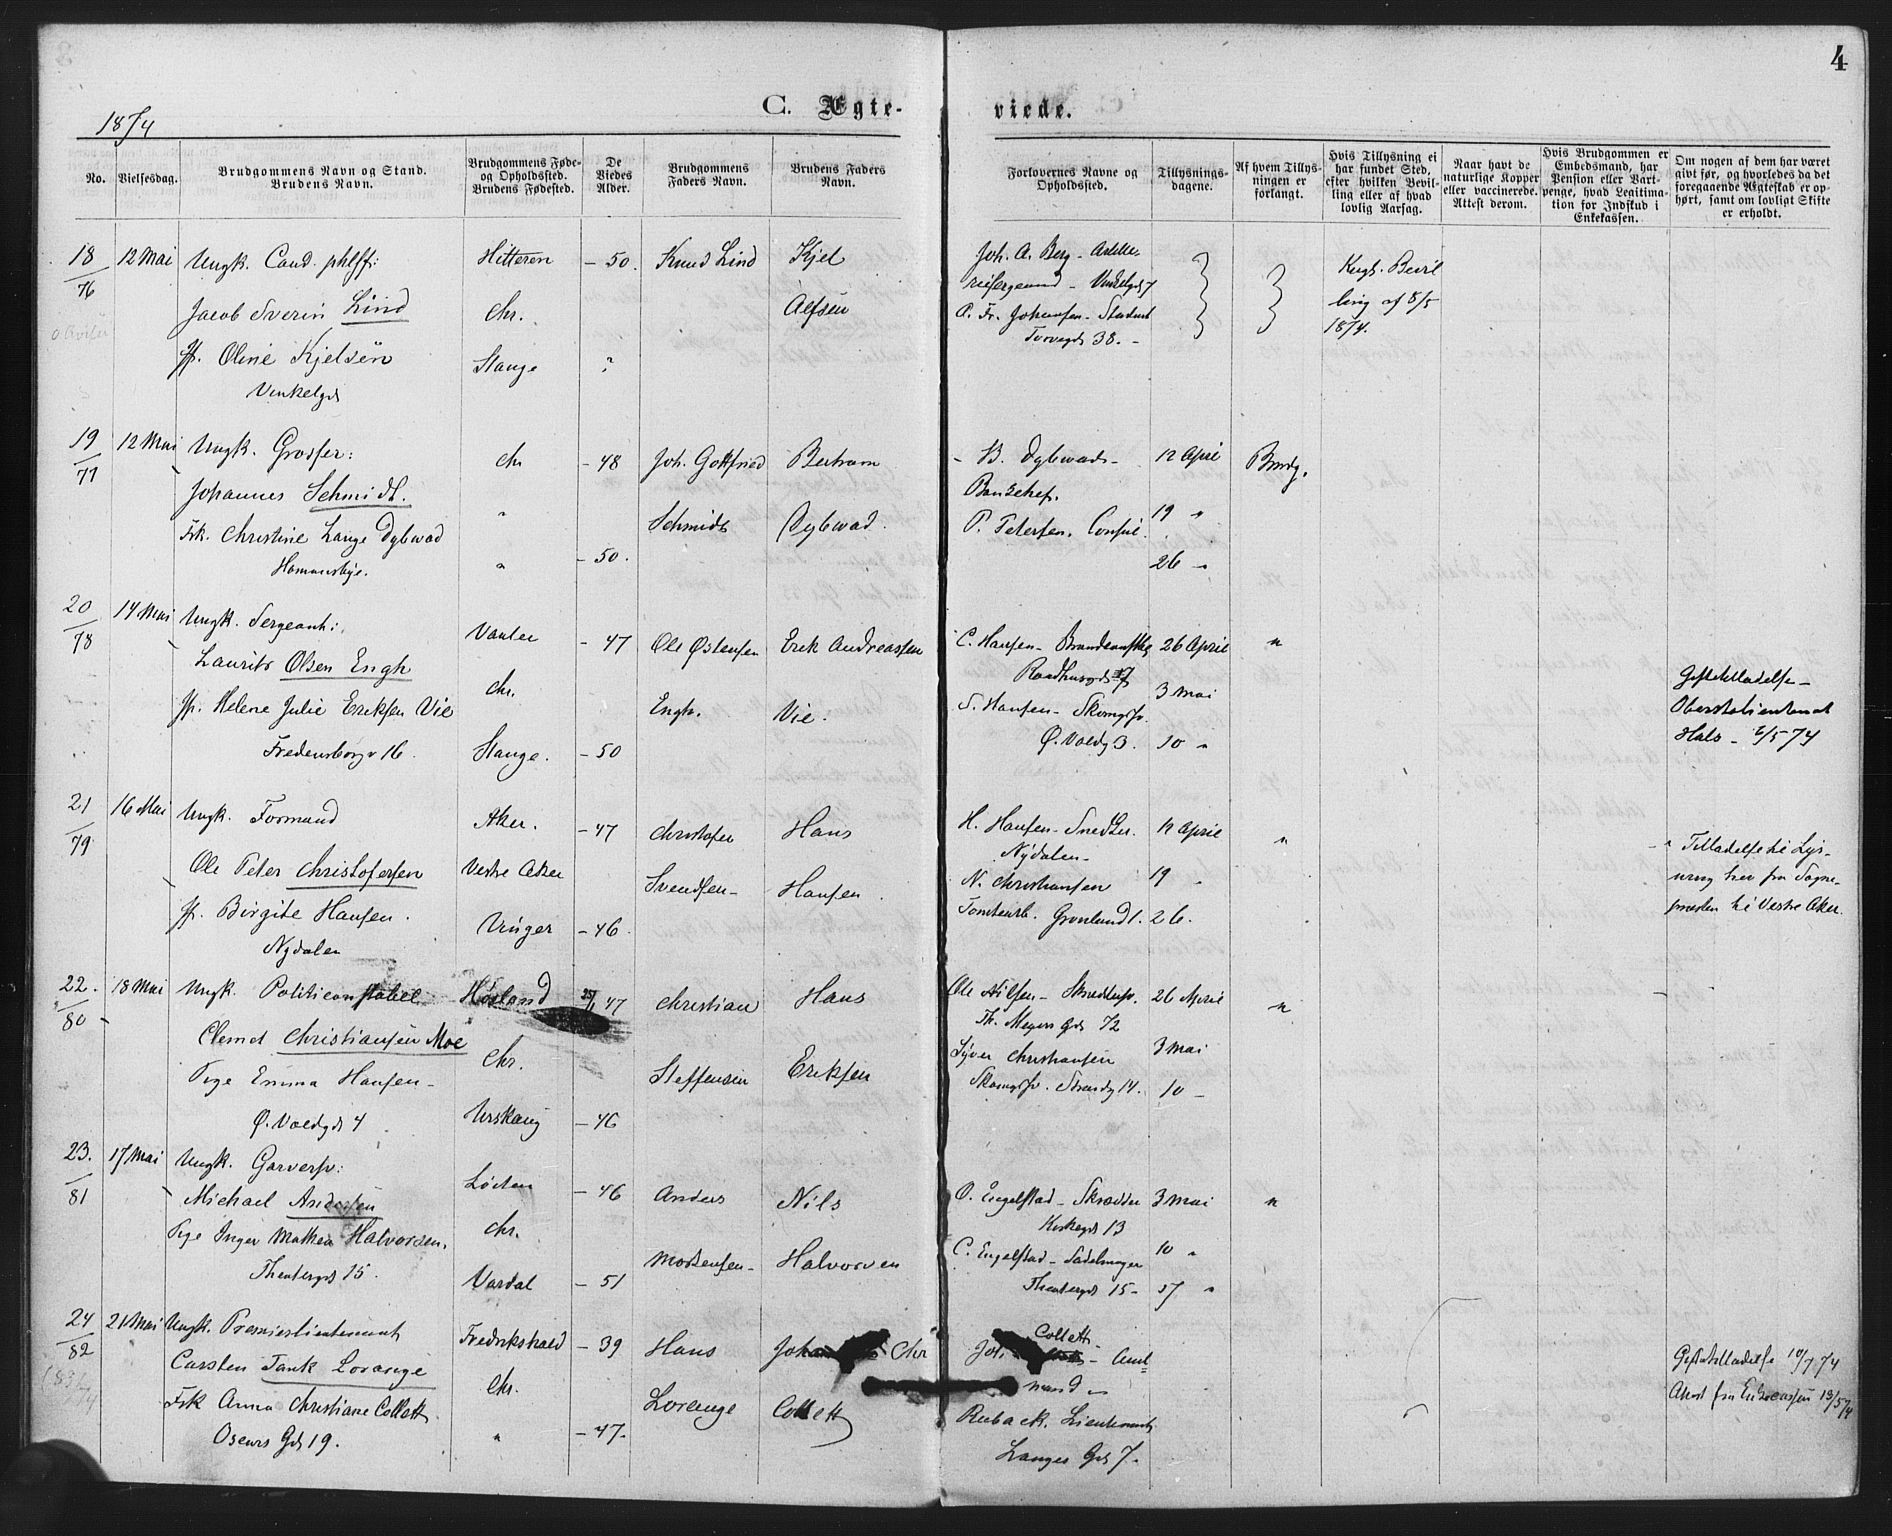 4
1874
C. Ægteviede.
No.
Vielsesdag.
Brudgommens Navn og Stand.
Brudens Navn.
Brudgommens Føde-
og Opholdssted.
Brudens Fødested.
De
Viedes
Alder.
Brudgommens
Faders Navn.
Brudens Faders
Navn.
Forlovernes Navne og
Opholdssted.
Tillysnings-
dagene.
Af hvem Tillys-
ningen er
forlangt.
Hvis Tillysning ei
har fundet Sted,
efter hvilken Bevil-
ling eller af hvad
lovlig Aarsag.
Naar havt de
naturlige Kopper
eller vaccinerede.
Attest derom.
Hvis Brudgommen er
Embedsmand, har
Pension eller Vart-
penge, hvad Legitima-
tion for Indskud i
Enkekassen.
Om nogen af dem har været
givt før, og hvorledes da det
foregaaende Ægteskab er op-
hørt, samt om lovligt Skifte
er erholdt.
18/76 12 Mai Ungk. Cand. philos: Hitteren - 50. Knud Lind Kjel
Jacob Sverin Lind Chr. Alfsen
Jfr. Oline Kjelsen Stange
Vinkelgd
Joh. A. Berg - Artille-
risergeand - Vinkelgd 7
P. Fr. Johansen - Student
Torvegd 38. -
Kngl. Bevil
ling af 8/5
1874.
19/77 12 Mai Ungk. Grosser: Chr - 48 Joh. Gottfried Bertram
Johannes Schmidt. " Schmidt Dybwad.
Frk. Christine Lange Dybwad " - 50.
Homansbye.
B. Dybwad - 12 April Brudg.
Bankchef. 19 "
P. Petersen. Consul. 26 "
20/78 14 Mai Ungk. Sergeant: Vanler - 47 Ole Østensen Erik Andreassen
Laurits Olsen Engh Chr. Engh. Vie.
Jfr. Helene Julie Eriksen Vie
Fredensborgv 16. Stange. - 50
C. Hansen - 26 April "
Raadhusgd 7 3 Mai
S. Hansen - Skomgsv.
Ø. Voldg 3. 10 "
Giftetilladelse -
Oberstlieutenant
Hals - 6/5 74
21/79 16 Mai Ungk. Formand Aker. - 47 Christofer Hans
Ole Peter Christofersen Vestre Aker Svendsen - Hansen
Jfr. Birgite Hansen. Vinger - 46.
Nydalen
H. Hansen - Snedker. 12 April "
Nydalen - 19 "
N. Christiansen
Tomtenb. Grønlund 1. 26.
Tilladelse til Lys-
ning her fra Sogne-
præsten til Vestre Aker.
22./80 18 Mai Ungk. Politiconstabel Høland 47 Christian Hans
Clemet Christiansen Moe Chr. Steffensen Eriksen
Pige Emma Hansen -
Ø. Voldgd 4 Urskaug - 46
Ole Nilsen - Snedkersv. 26 April "
Th. Meyers Gd 72 3 Mai
Syver Christiansen
Skomgsv. Strandg 14. 10 -
23./81 17 Mai Ungk. Garversv: Løiten - 46 Anders Nils
Michael Andersen Chr. Mortensen - Halvorsen
Pige Inger Mathea Halvorsen.
Theatergd 15. Vardal - 51
P. Engelstad - Skrædder 3 Mai "
Kirkegd 13
C. Engelstad - Sadelmager 10 "
Theatergd 15 - 17 "
24/82 21 Mai Ungk. Premierlieutenant Fredrikshald - 39 Hans Joh Chr
Carsten Tank Lorange Chr. Lorenge Collett
Frk Anna Christiane Collett " - 47.
Oscars Gd 19.
Joh. Collett - Amt-
mand -
Ruback. Lieutenant
Langes Gd 7.
Giftetilladelse 10/1 74
Attest fra Enkecassen 19/5 74